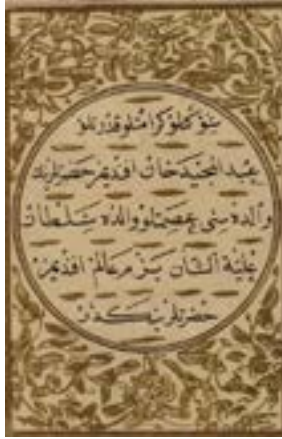 شوكتلو كرامتلو قدرتلو
عبد المجيد خان افنديمز حضرتلرينك
والده سى عصمتلو والده سلطان
علية الشان بزم عالم افنديمز
حضرتلرينكدر